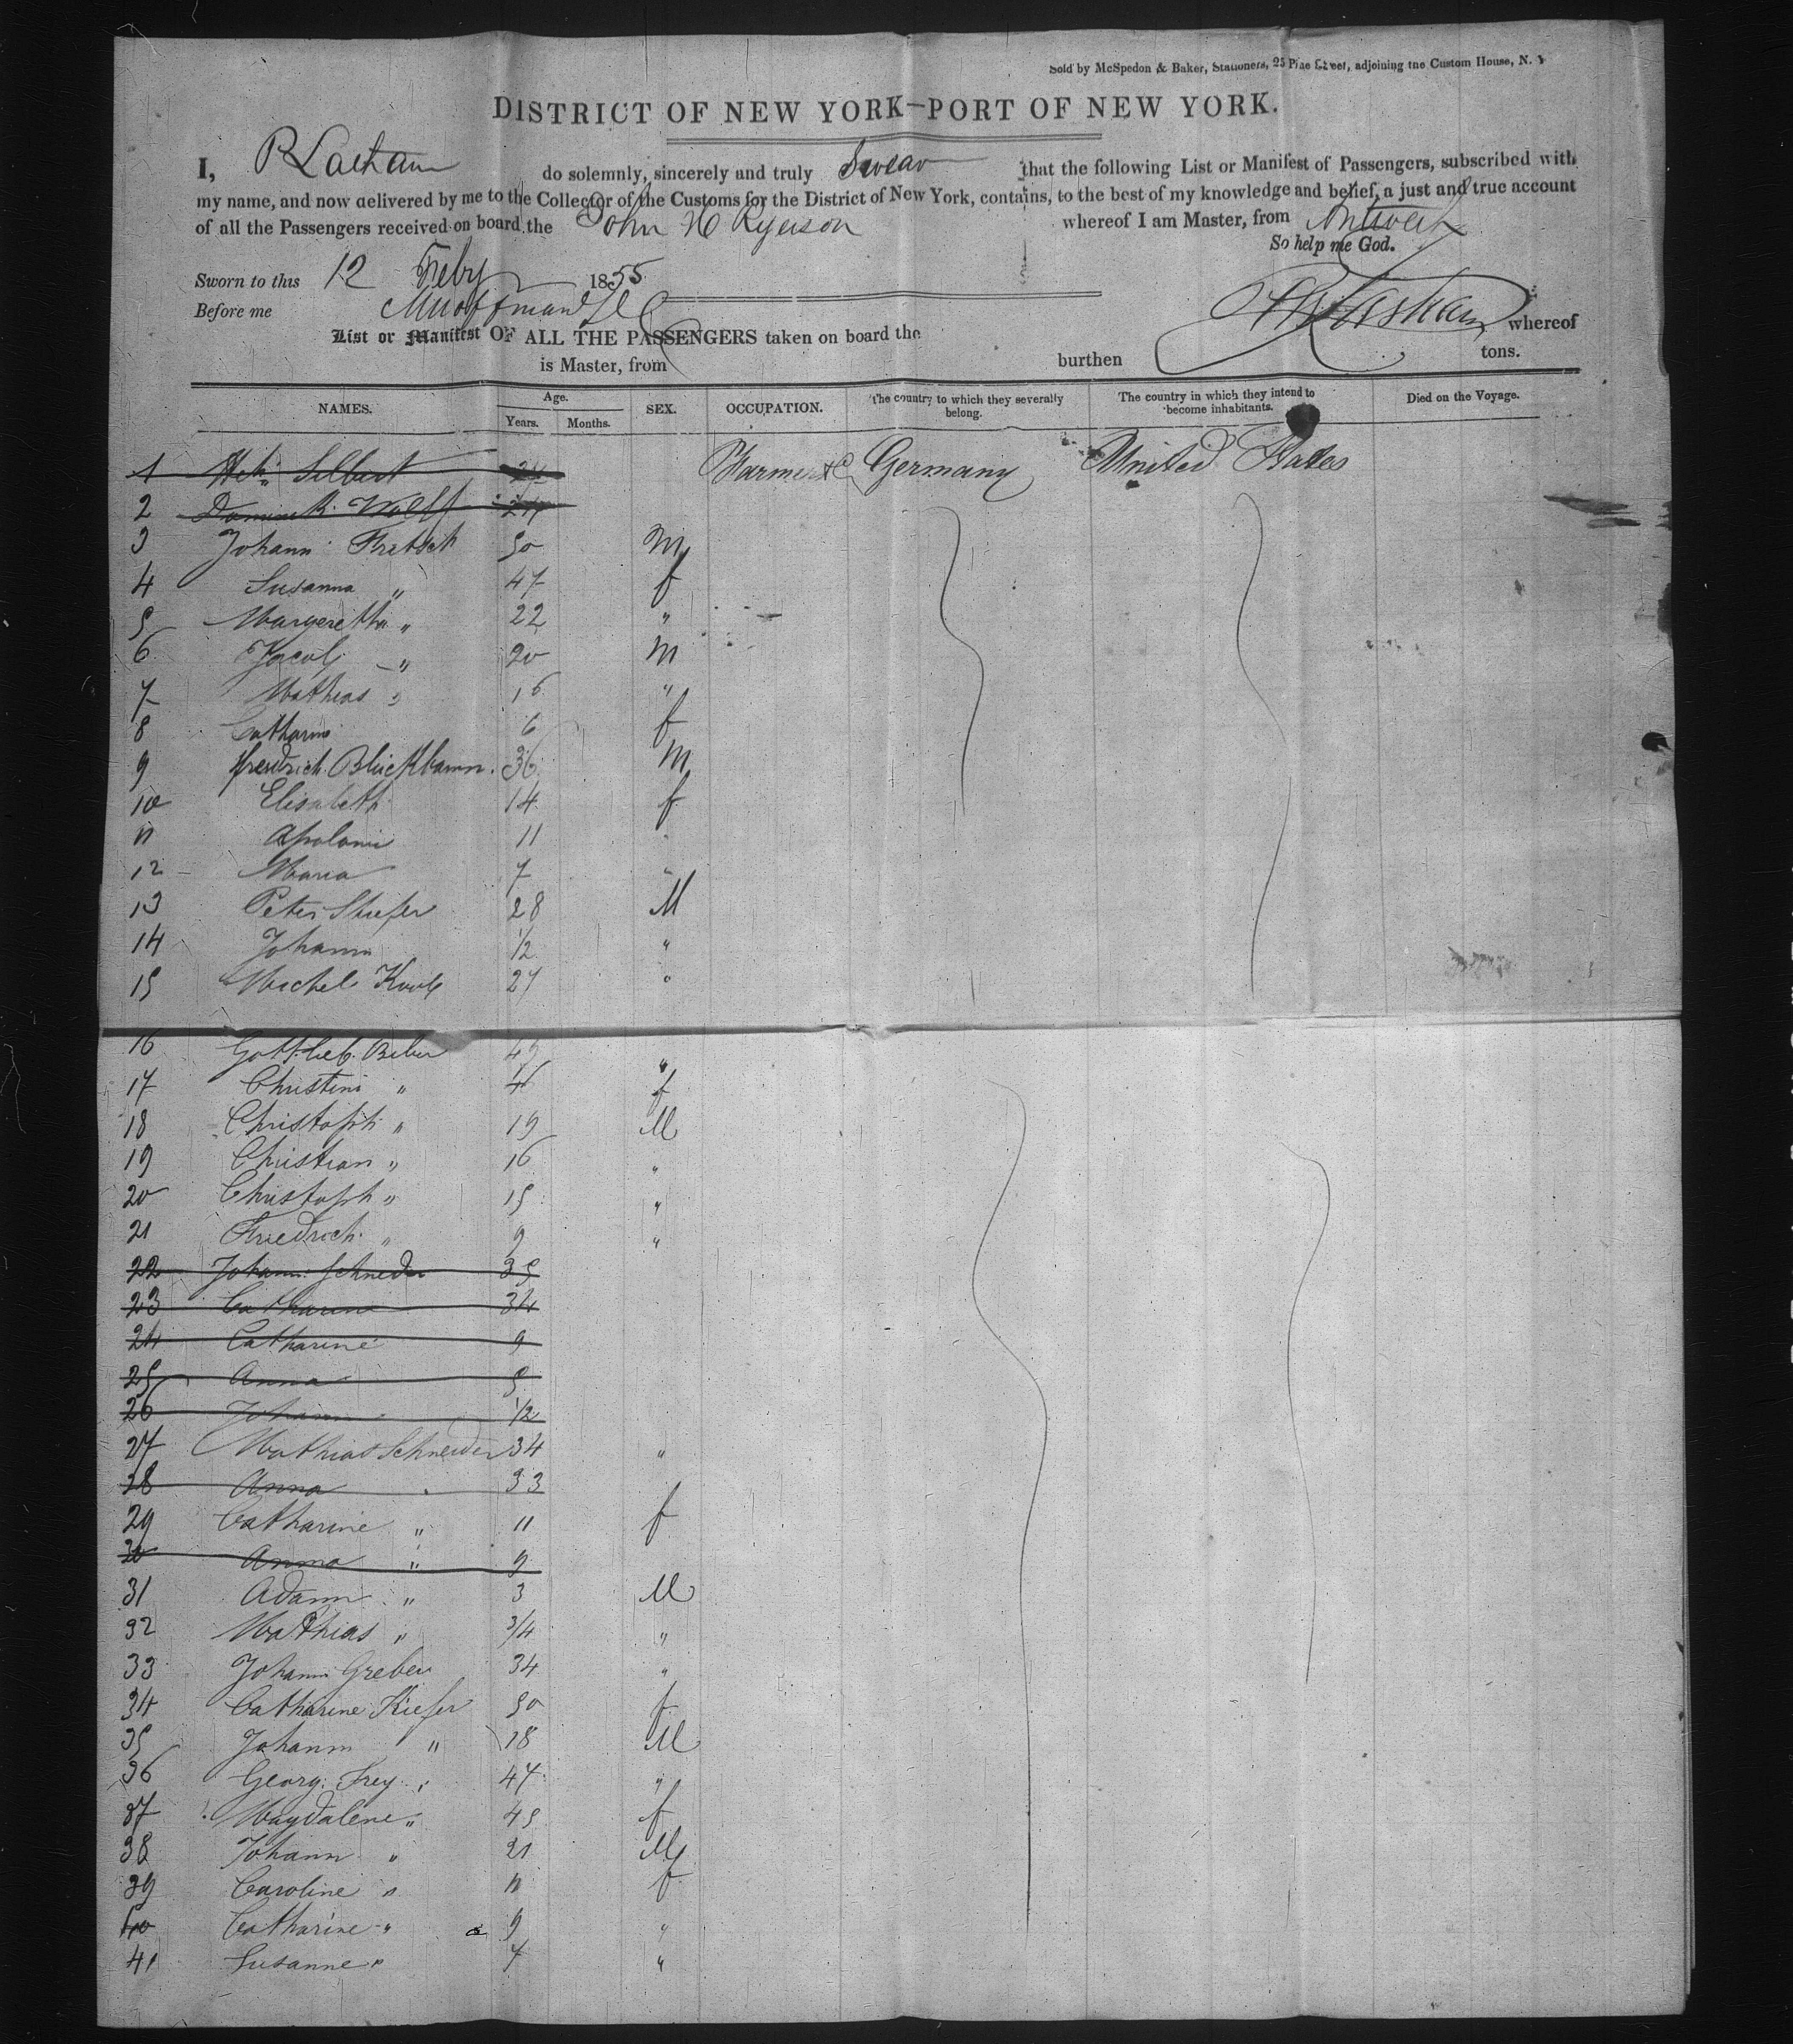 Sold by McSpedon & Baker, Stationers, 25 Pine Street, adjoining the Custom House, N. Y
DISTRICT OF NEW YORK—PORT OF NEW YORK.
I, R Latham do solemnly, sincerely and truly Swear that the following List or Manifest of Passengers, subscribed with
my name, and now delivered by me to the Collector of the Customs for the District of New York, contains, to the best of my knowledge and belief, a just and true account
of all the Passengers received on board the John H Ryerson whereof I am Master, from Antwerp
So help me God.
Sworn to this 12 Feby 1855
Before me
List or Manifest OF ALL THE PASSENGERS taken on board the whereof
is Master, from burthen tons.
NAMES. Age. Years. Months. SEX. OCCUPATION. The country to which they severally belong. The country in which they intend to become inhabitants. Died on the Voyage.
1 Silbert 24 Farmer &c Germany United States
2 Wolff 24
3 Johann Fretsch 50 m
4 Susanna " 47 f
5 Margeretha " 22 "
6 Jacob " 20 m
7 Mathias " 16 "
8 Catharine 6 f
9 Freidrich Blückbaum 36 m
10 Elisabeth 14 f
11 Apoloni 11 "
12 Maria 7 "
13 Peter Stiefer 28 M
14 Johann 1/2 "
15 Michel 27 "
16 Gottlieb Biber 49 "
17 Christine " 46 f
18 Christoph " 19 M
19 Christian " 16 "
20 Christoph " 15 "
21 Friedrich " 9 "
22 Johann Schneder 35
23 Catharine 34
24 Catharine 9
25 Anna 5
26 Johann 1/2
27 Mathias Schneider 34 "
28 Anna 33
29 Catharine " 11 f
30 Anna " 9
31 Adam " 3 M
32 Mathias " 3/4 "
33 Johann Greber 34 "
34 Catharine Kiefer 50 f
35 Johann " 18 M
36 Georg Frey 47 "
37 Magdalene " 45 f
38 Johann " 21 M
39 Caroline " 11 f
40 Catharine " 9 "
41 Susanne " 7 "